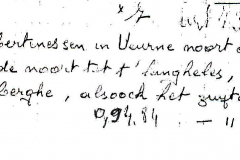 x 7
bertinessen in Veurne noort
de noort tot t' Langheles,
berghe, alsoock het zuyt
0,94.84 - "